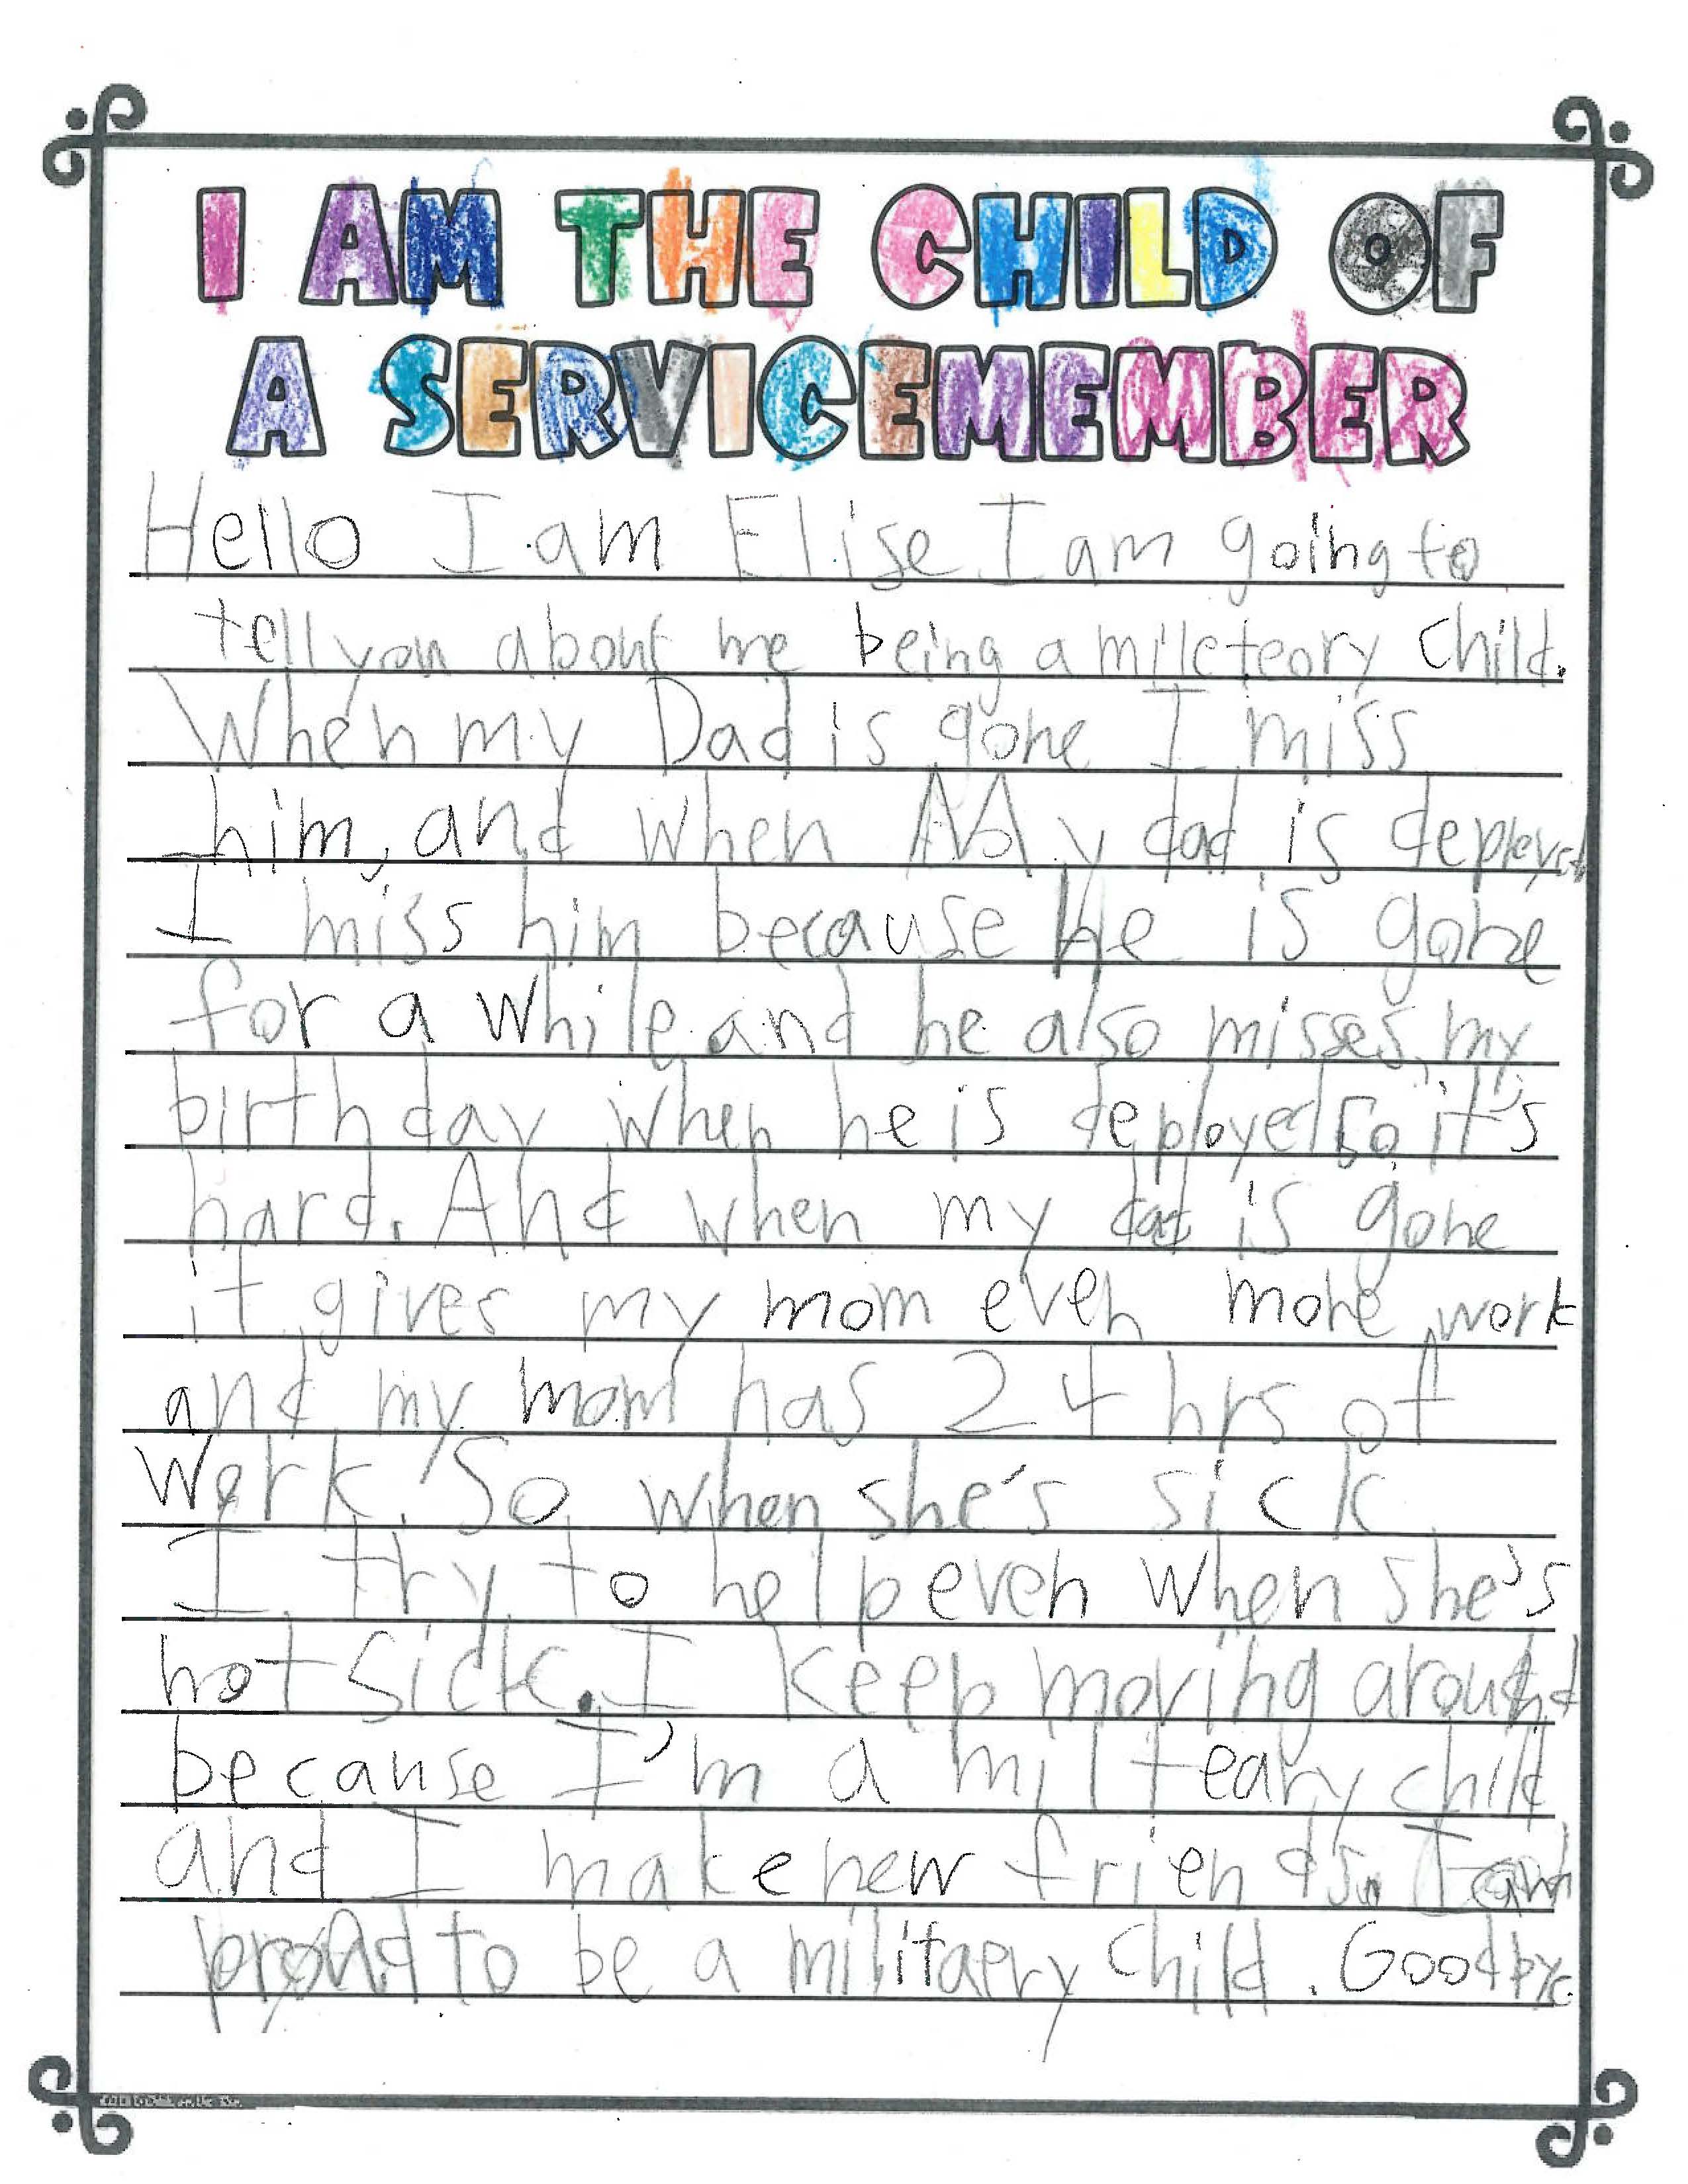 I AM THE CHILD OF
A SERVICEMEMBER
Hello I am Elise I am going to
tell you about me being a mileteory child.
When my Dad is gone I miss
him, and when My dad is depleyed
I miss him because He is gone
for a while and he also misses my
birthday when he is deployed so it's
hard. And when my dad is gone
it gives my mom even more work
and my mom has 24 hrs of
work. So when she's sick
I try to help even when she's
not sick. I keep moving around
because I'm a milteary child
and I make new friends. I am
proud to be a militaery child. Goodbye